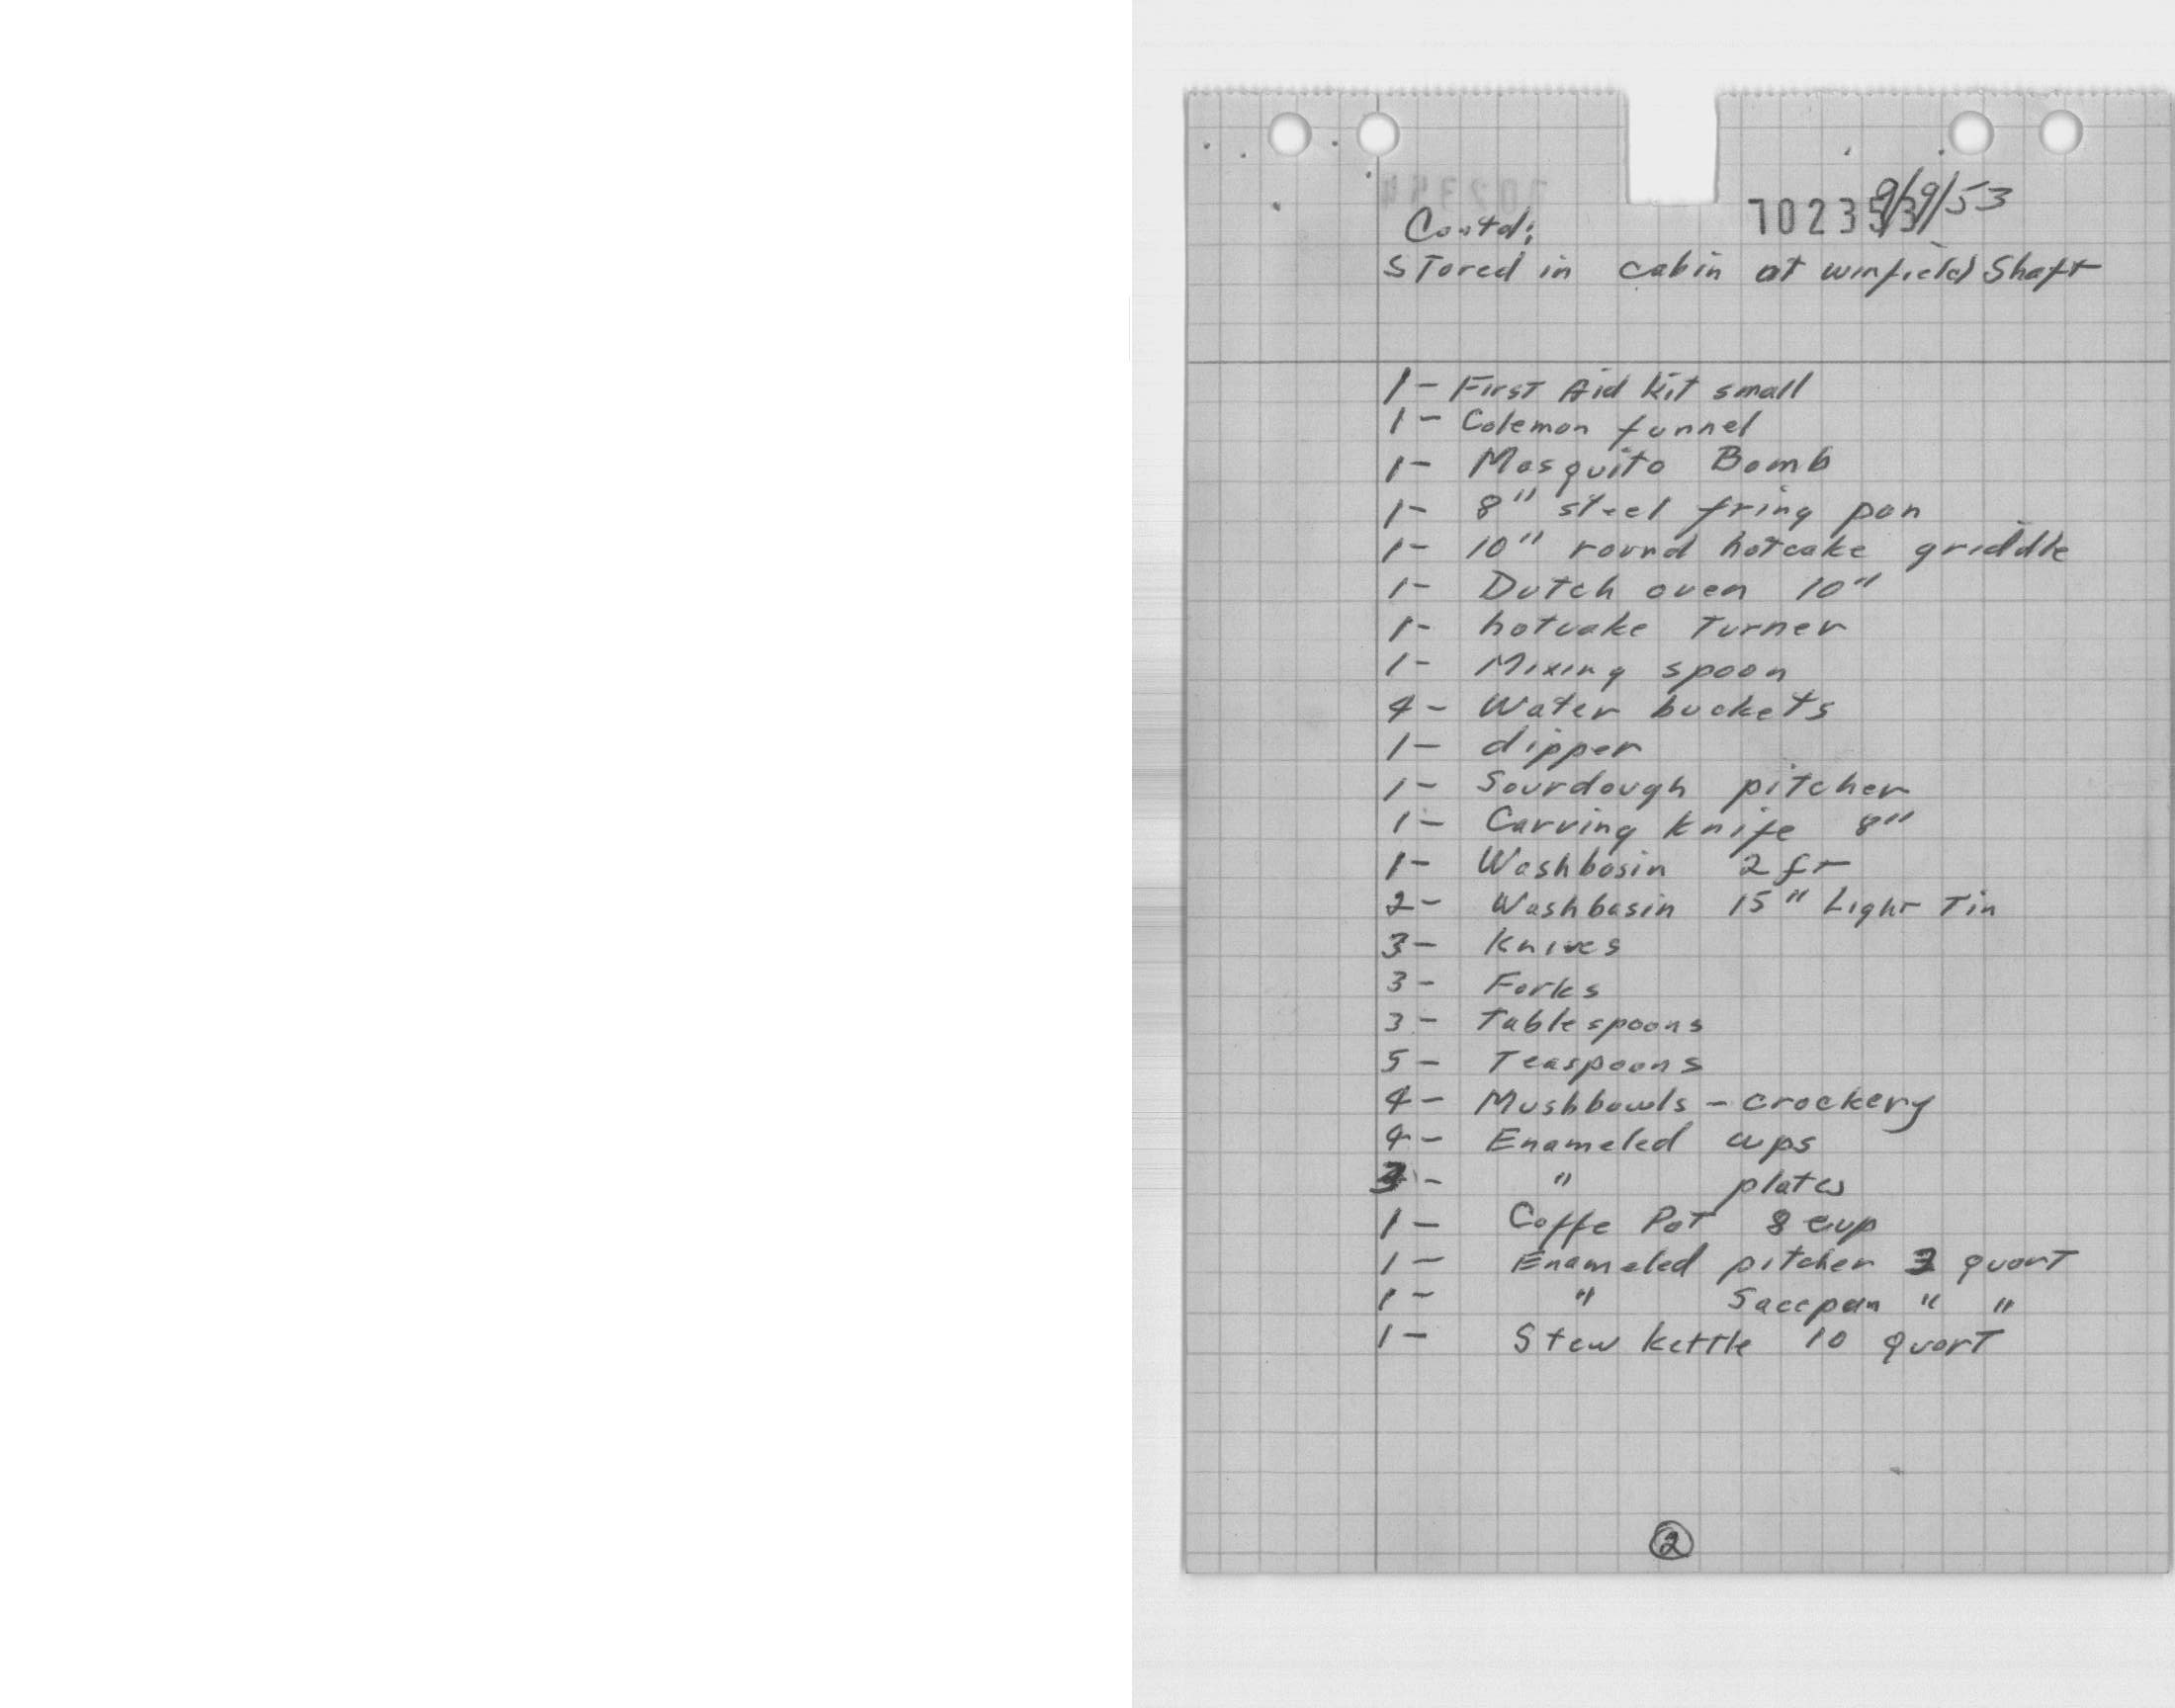 Contd: 702353 9/9/53
Stored in cabin at Winfield Shaft
1- First Aid kit small
1- Colemon funnel
1- Mosquito Bomb
1- 8" steel fring pan
1- 10" round hotcake griddle
1- Dutch oven 10"
1- hotcake turner
1- Mixing spoon
4- Water buckets
1- dipper
1- Sourdough pitcher
1- Carving knife 8"
1- Washbasin 2 ft
2- Washbasin 15" Light Tin
3- Knives
3- Forks
3- Tablespoons
5- Teaspoons
4- Mushbowls - crockery
4- Enameled cups
3- " plates
1- Coffe Pot 8 cup
1- Enameled pitcher quart
1- " Sacepan " "
1- Stew kettle 10 quart
2